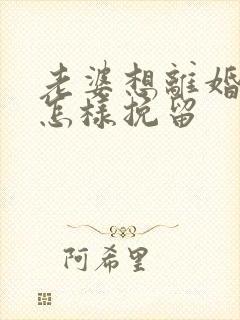 老婆想離婚
怎樣挽留
阿希里